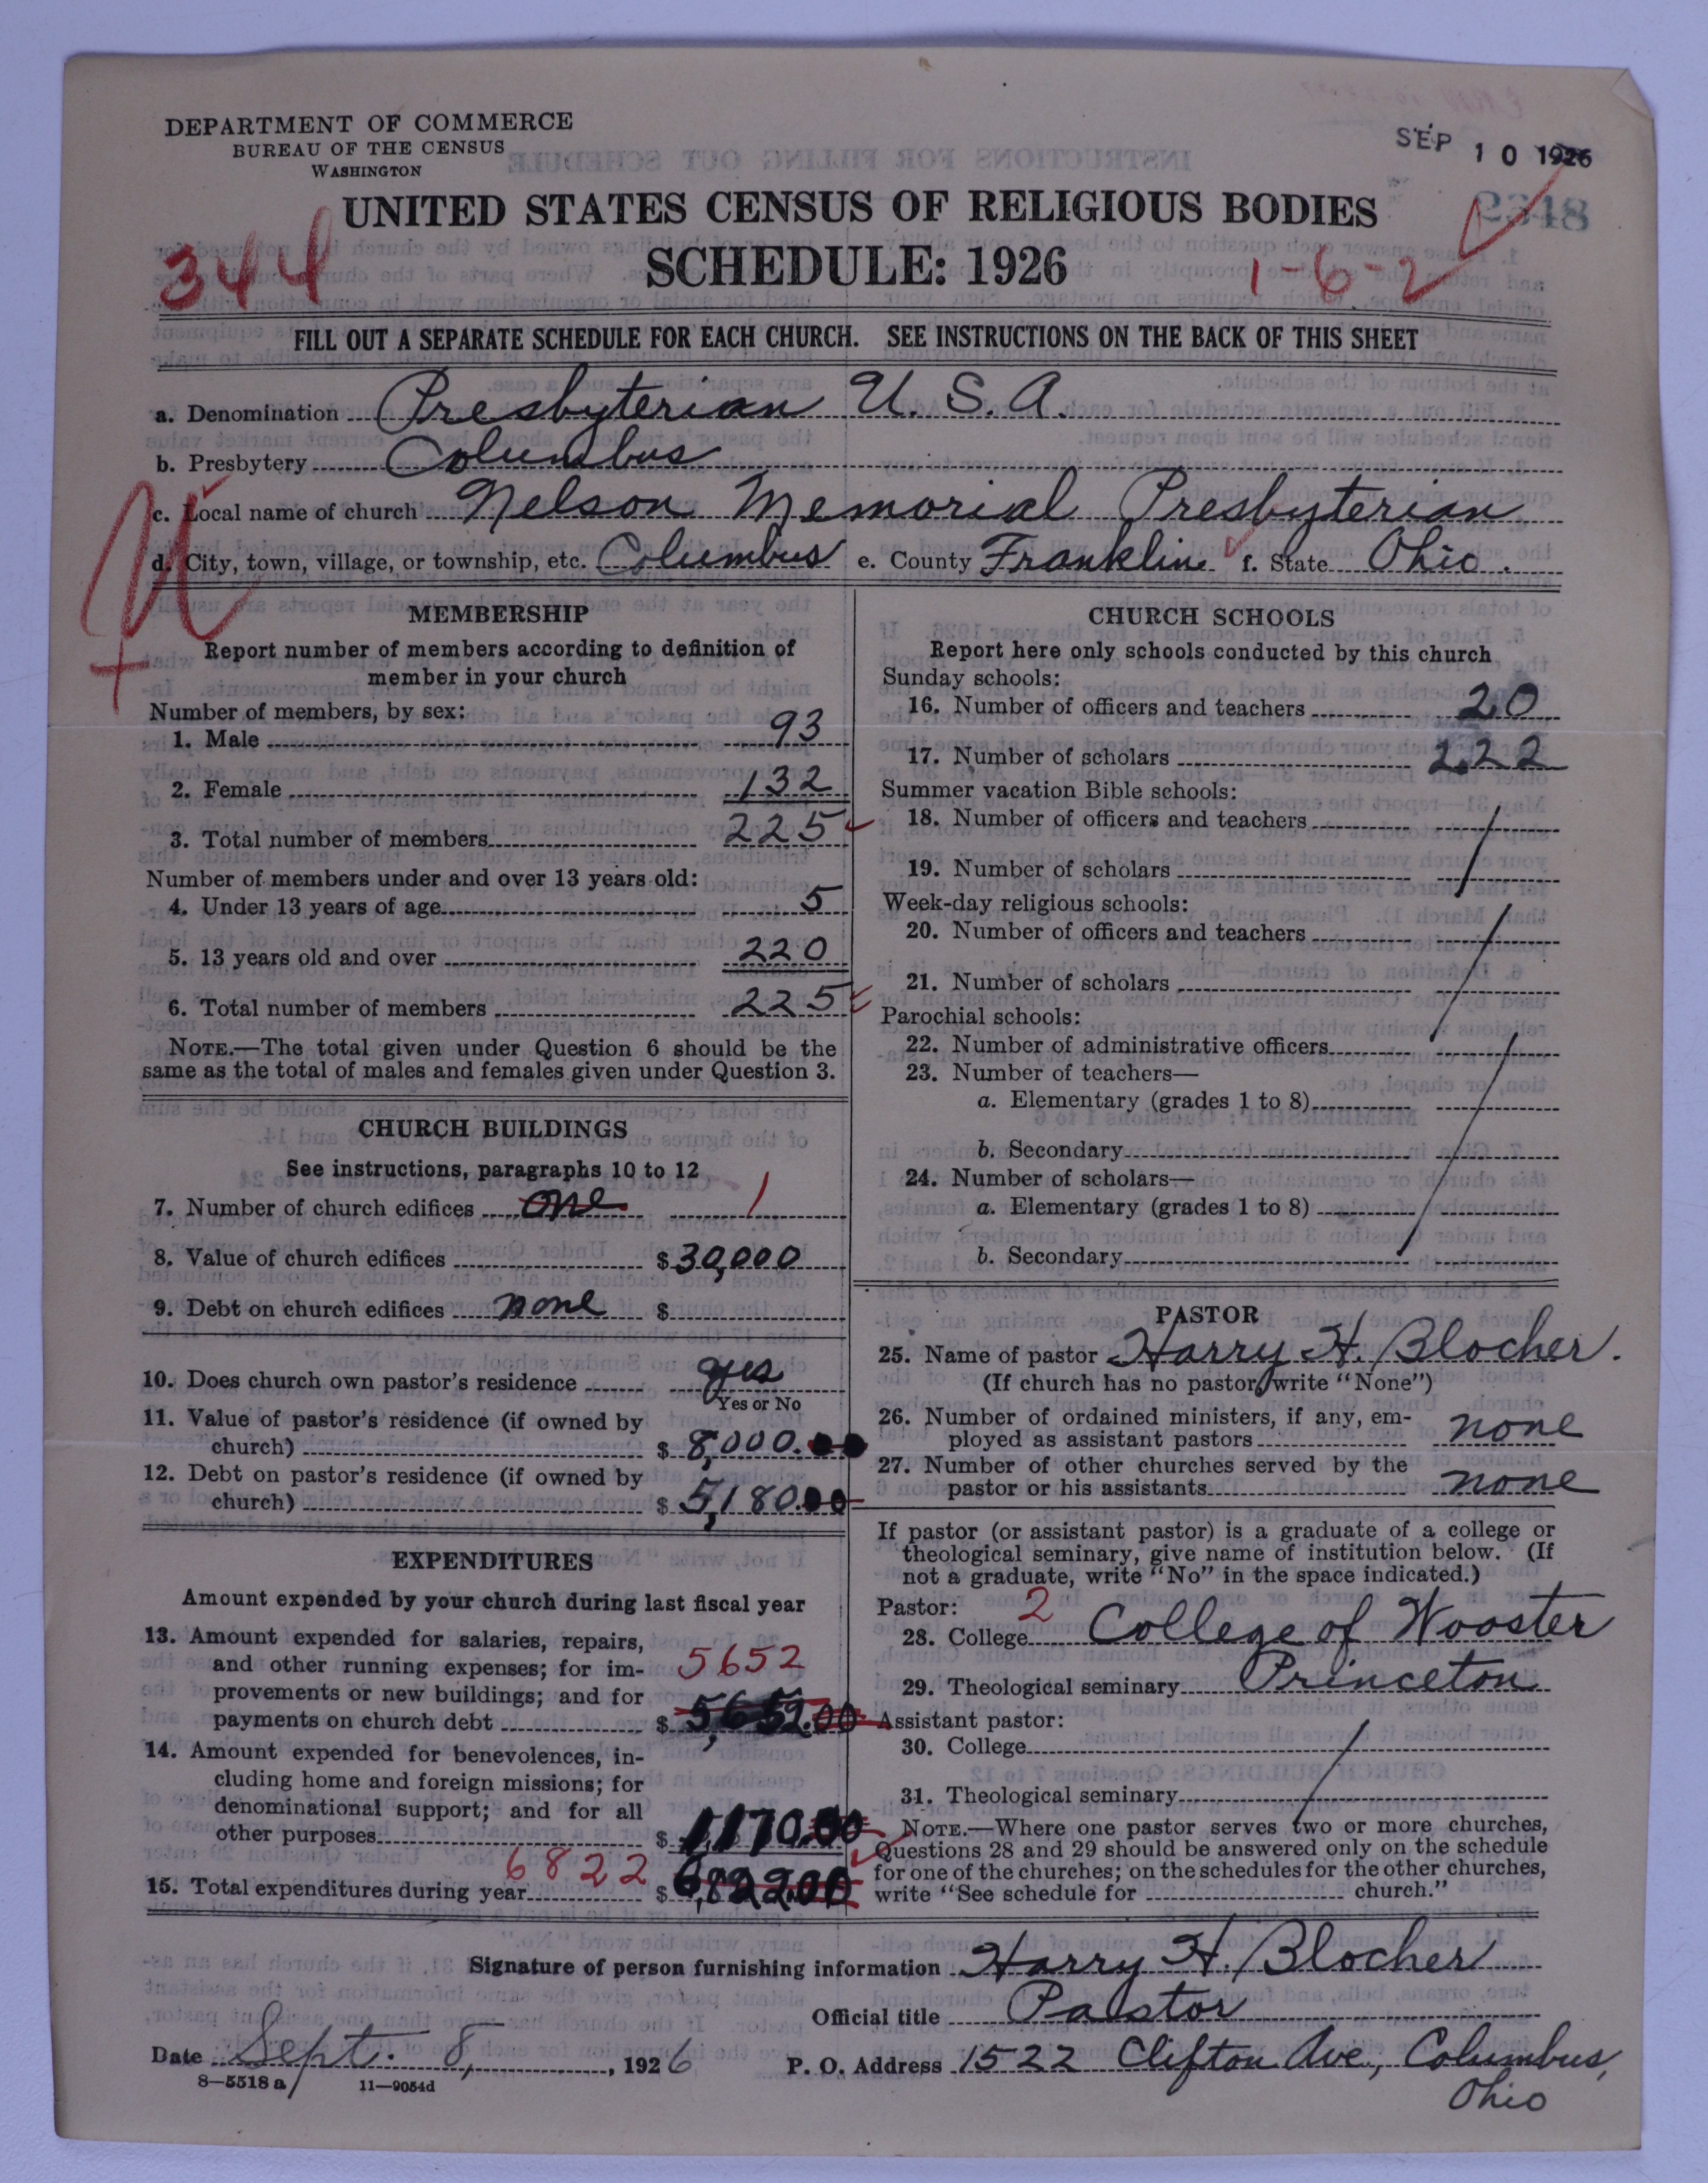 DEPARTMENT OF COMMERCE
BUREAU OF THE CENSUS
WASHINGTON
SEP 10 1926
2348
UNITED STATES CENSUS OF RELIGIOUS BODIES
SCHEDULE: 1926
344
1-6-2
FILL OUT A SEPARATE SCHEDULE FOR EACH CHURCH. SEE INSTRUCTIONS ON THE BACK OF THIS SHEET
a. Denomination Presbyterian U. S. A.
b. Presbytery Columbus
c. Local name of church Nelson Memorial Presbyterian
d. City, town, village, or township, etc. Columbus e. County Franklin f. State Ohio.
MEMBERSHIP
Report number of members according to definition of
member in your church
Number of members, by sex:
1. Male 93
2. Female 132
3. Total number of members 225
Number of members under and over 13 years old:
4. Under 13 years of age 5
5. 13 years old and over 220
6. Total number of members 225
NOTE.—The total given under Question 6 should be the
same as the total of males and females given under Question 3.
CHURCH BUILDINGS
See instructions, paragraphs 10 to 12
7. Number of church edifices one 1
8. Value of church edifices $30,000
9. Debt on church edifices none $
10. Does church own pastor's residence yes
Yes or No
11. Value of pastor's residence (if owned by
church) $8,000.00
12. Debt on pastor's residence (if owned by
church) $5,180.00
EXPENDITURES
Amount expended by your church during last fiscal year
13. Amount expended for salaries, repairs,
and other running expenses; for im- 5652
provements or new buildings; and for
payments on church debt $5,652.00
14. Amount expended for benevolences, in-
cluding home and foreign missions; for
denominational support; and for all
other purposes $1,170.00
6822
15. Total expenditures during year $6,822.00
CHURCH SCHOOLS
Report here only schools conducted by this church
Sunday schools:
16. Number of officers and teachers 20
17. Number of scholars 222
Summer vacation Bible schools:
18. Number of officers and teachers
19. Number of scholars
Week-day religious schools:
20. Number of officers and teachers
21. Number of scholars
Parochial schools:
22. Number of administrative officers
23. Number of teachers—
a. Elementary (grades 1 to 8)
b. Secondary
24. Number of scholars—
a. Elementary (grades 1 to 8)
b. Secondary
PASTOR
25. Name of pastor Harry H. Blocher.
(If church has no pastor, write "None")
26. Number of ordained ministers, if any, em-
ployed as assistant pastors none
27. Number of other churches served by the
pastor or his assistants none
If pastor (or assistant pastor) is a graduate of a college or
theological seminary, give name of institution below. (If
not a graduate, write "No" in the space indicated.)
Pastor: 2
28. College College of Wooster
29. Theological seminary Princeton
Assistant pastor:
30. College
31. Theological seminary
NOTE.—Where one pastor serves two or more churches,
Questions 28 and 29 should be answered only on the schedule
for one of the churches; on the schedules for the other churches,
write "See schedule for church."
Signature of person furnishing information Harry H. Blocher
Official title Pastor
Date Sept. 8, 1926 P. O. Address 1522 Clifton Ave., Columbus,
Ohio
8—5518a 11—9054d